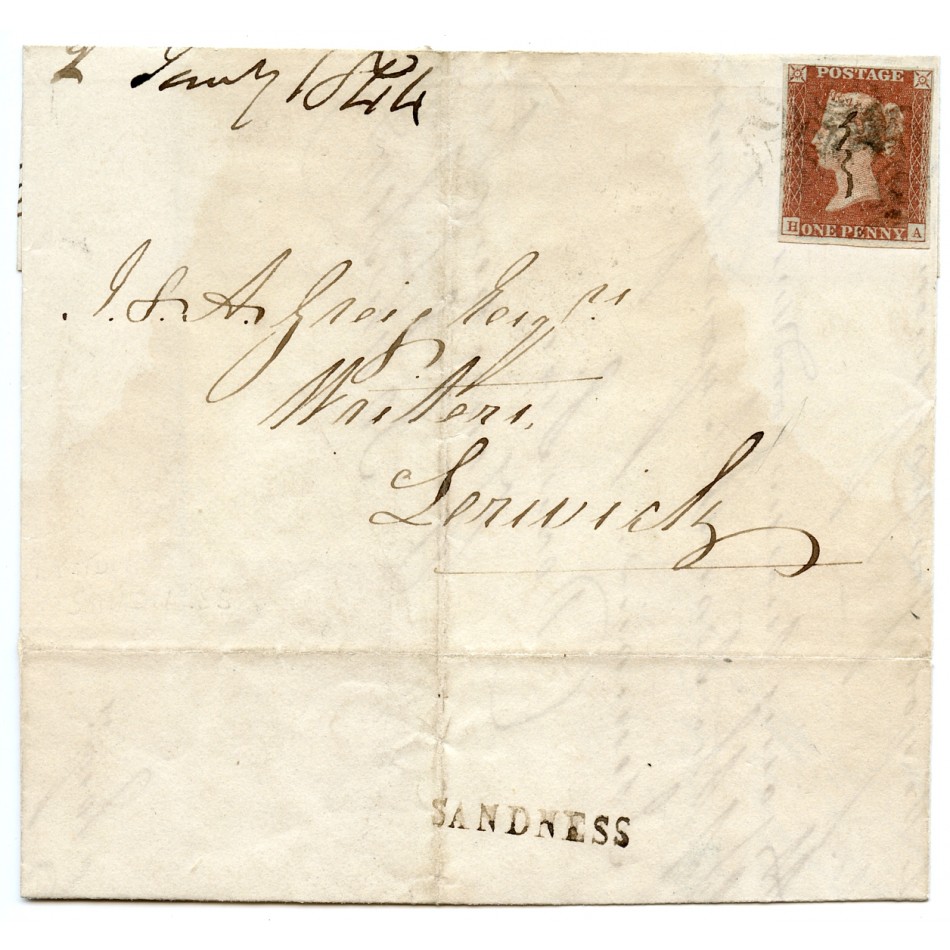 2 Jany 1844
POSTAGE
H ONE PENNY A
J. & A. Greig Esqrs
Writers
Lerwick
SANDNESS